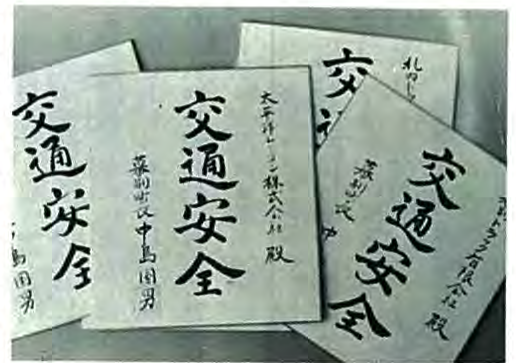 交通安全
島国男
太平洋 株式会社 殿
交通安全
幕別町長 中島国男
札内
交通
有限会社 殿
交通安全
幕別町長 中